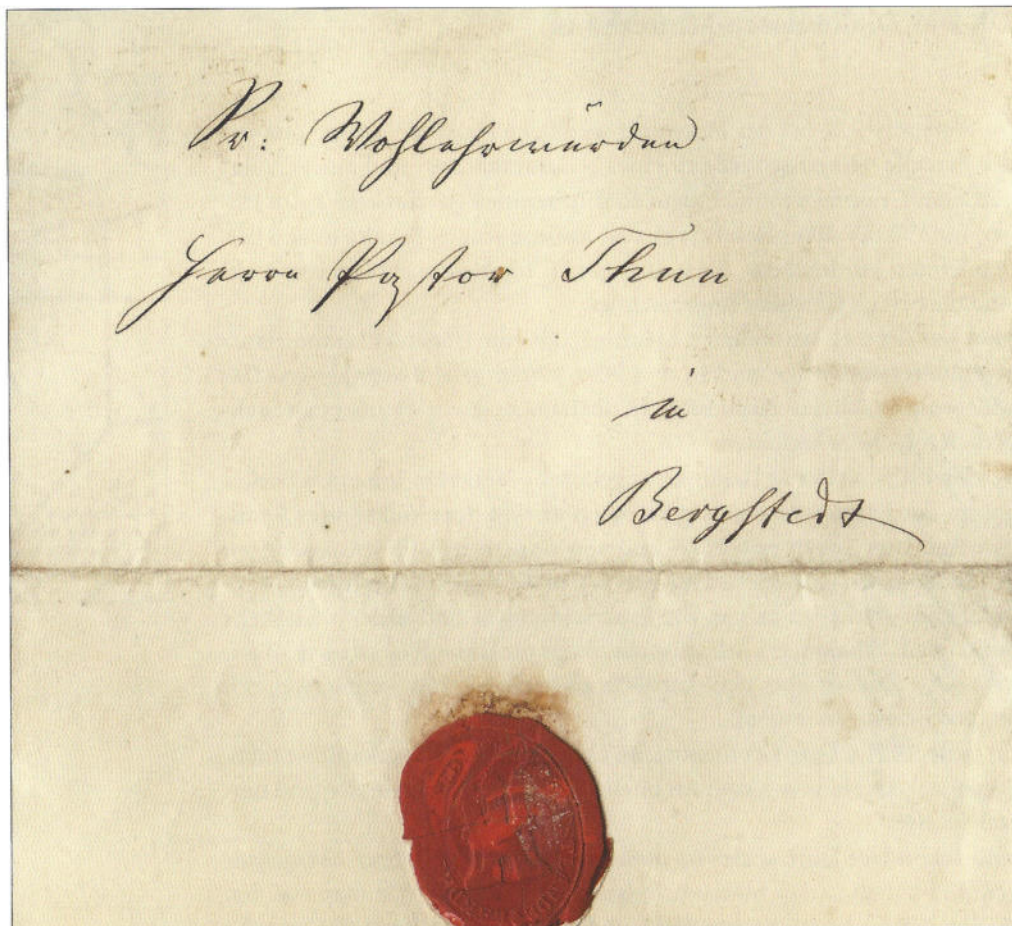 Sr: Wohlehrwürden
Herrn Pastor Thun
in
Bergstedt